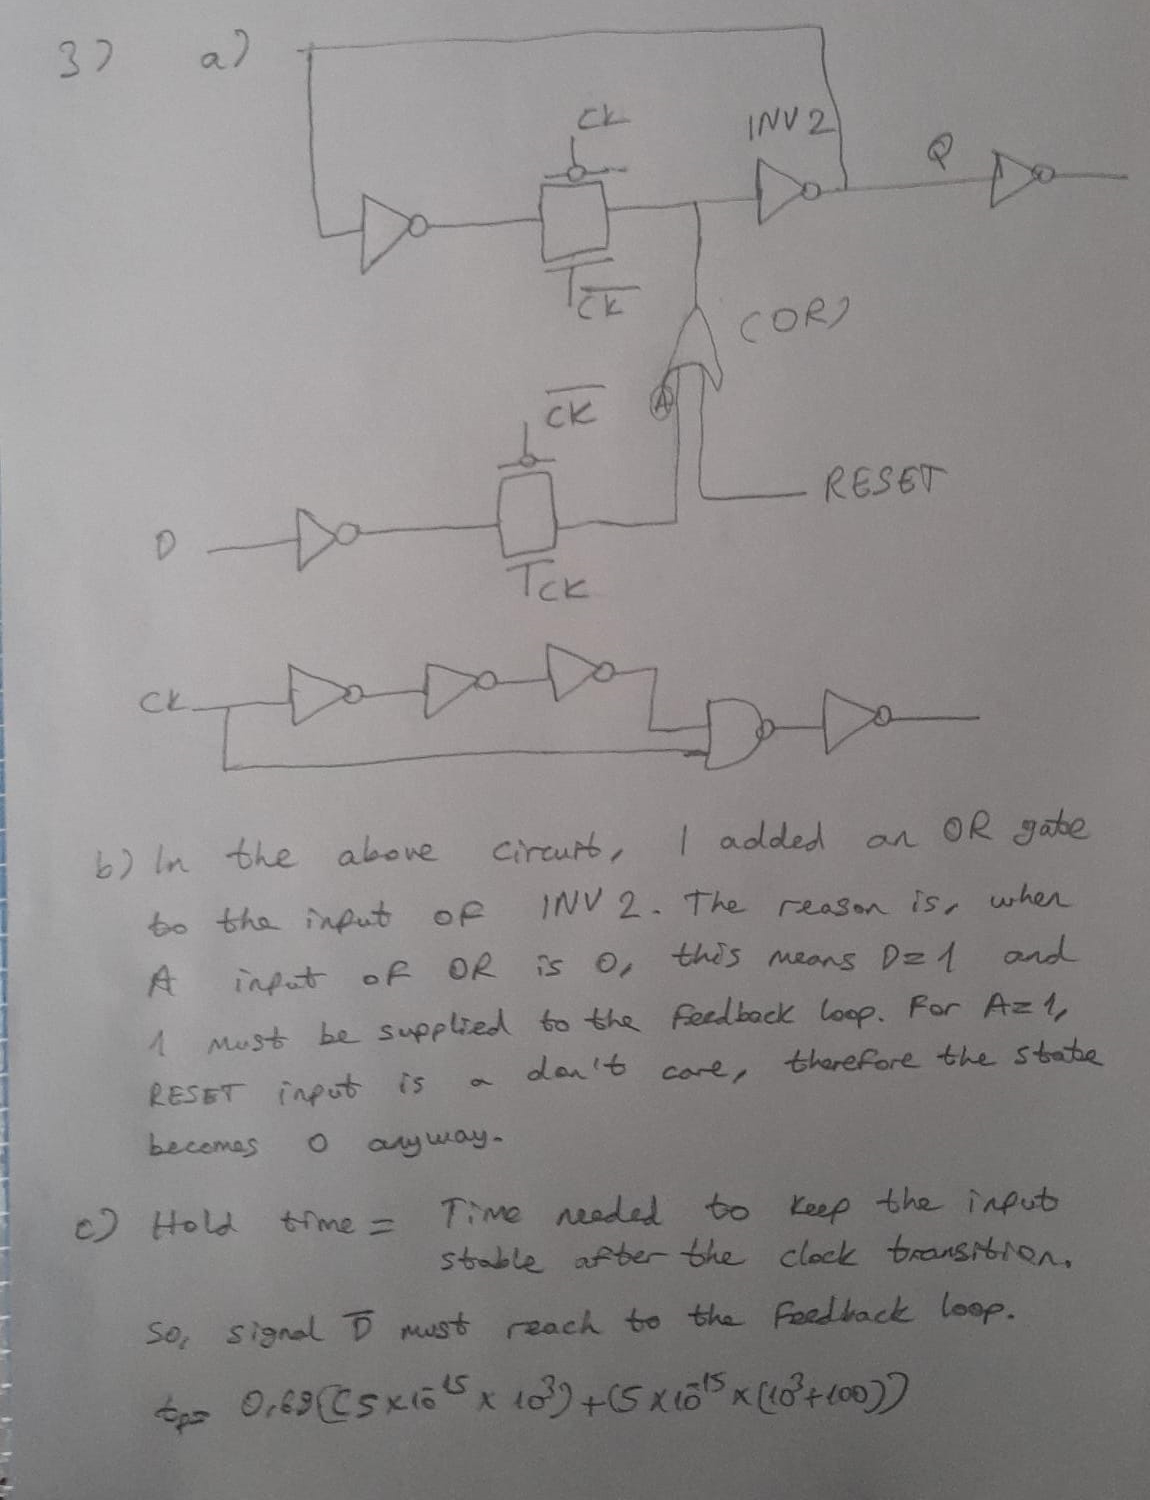 3) a)
CK
INV 2
Q
C̅K̅
(OR)
C̅K̅
A
RESET
D
CK
CK
b) In the above circuit, I added an OR gate
to the input of INV 2. The reason is, when
A input of OR is 0, this means D=1 and
1 must be supplied to the feedback loop. For A=1,
RESET input is a don't care, therefore the state
becomes 0 anyway.
c) Hold time = Time needed to keep the input
stable after the clock transition.
So, signal D̅ must reach to the feedback loop.
tp= 0,69((5x10^-15 x 10^3)+(5x10^-15 x(10^3+100))